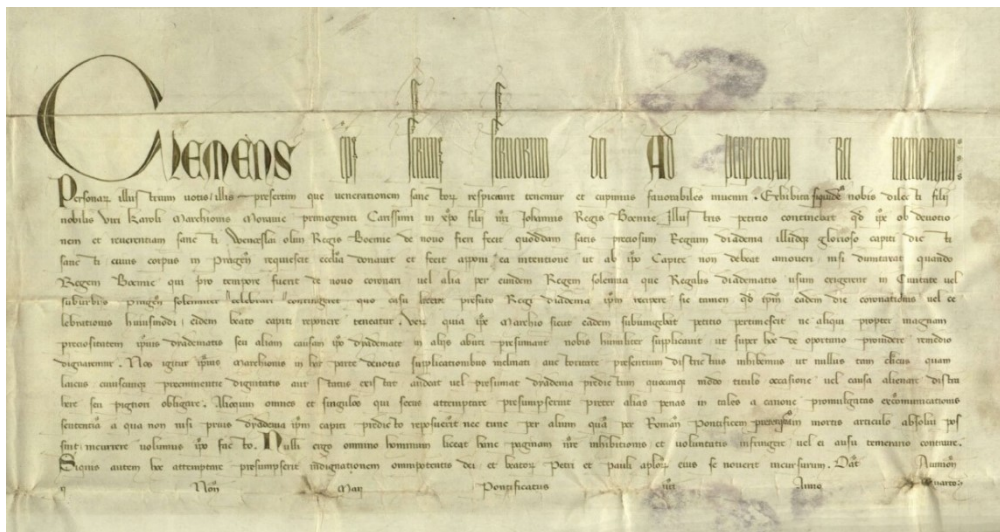 Clemens ep̄s servus servorum dei Ad perpetuam rei memoriam
Personar̄ illustrium votis illis presertim que venerationem sanctor̄ respiciunt tenemur et cupimus favorabiles inveniri . Exhibita siquidē nobis dilecti filij
nobilis viri Karoli Marchionis Moravie primogeniti Carissimi in xp̄o filij nr̄i Johannis Regis Boemie Illustris petitio continebat qd̄ ip̄e ob devotio
nem et reverentiam sancti Wenceslai olim Regis Boemie de novo fieri fecit quoddam satis preciosum Regium dyadema illudqꝫ glorioso capiti dicti
sancti cuius corpus in Pragen̄ requiescit eccl̄ia donavit et fecit apponi ea intentione ut ab ip̄o Capite non debeat amoveri nisi dumtaxat quando
Regem Boemie qui pro tempore fuerit de novo coronari vel alia per eundem Regem solemnia que Regalis dyadematis usum exigerent in Civitate vel
suburbijs Pragen̄ solemniter celebrari contingeret quo casu liceret prefato Regi dyadema ip̄m recipere sic tamen qd̄ ip̄m eadem die coronationis vel ce
lebrationis huiusmodi eidem beato capiti reponere teneatur . Ver̄ quia ip̄e Marchio sicut eadem subiungebat petitio pertimescit ne aliqui propter magnam
preciositatem ip̄ius dyadematis seu aliam causam ip̄o dyademate in alios abuti presumant nobis humiliter supplicavit ut super hoc de oportuno providere remedio
dignaremur . Nos igitur ip̄ius Marchionis in hac parte devotis supplicationibus inclinati auctoritate presentium districtius inhibemus ut nullus tam cl̄icus quam
laicus cuiuscumqꝫ preeminentie dignitatis aut status existat audeat vel presumat dyadema predictum quocumqꝫ modo titulo occasione vel causa alienare distra
here seu pignori obligare . Alioquin omnes et singulos qui secus attemptare presumpserint preter alias penas in tales a canone promulgatas excōmunicationis
sententia a qua non nisi prius dyadema ip̄m capiti predicto reposuerit nec tunc per alium quā per Roman̄ Pontificem preterquam mortis articulo absolvi pos
sint incurrere volumus ip̄o facto . Nulli ergo omnino hominum liceat hanc paginam nr̄e inhibitionis et voluntatis infringere vel ei ausu temerario contraire .
Siquis autem hoc attemptare presumpserit indignationem omnipotentis dei et beator̄ Petri et Pauli apl̄or̄ eius se noverit incursurum . Dat̄ Avinion̄
ij Non̄ Maij Pontificatus nr̄i Anno Quarto